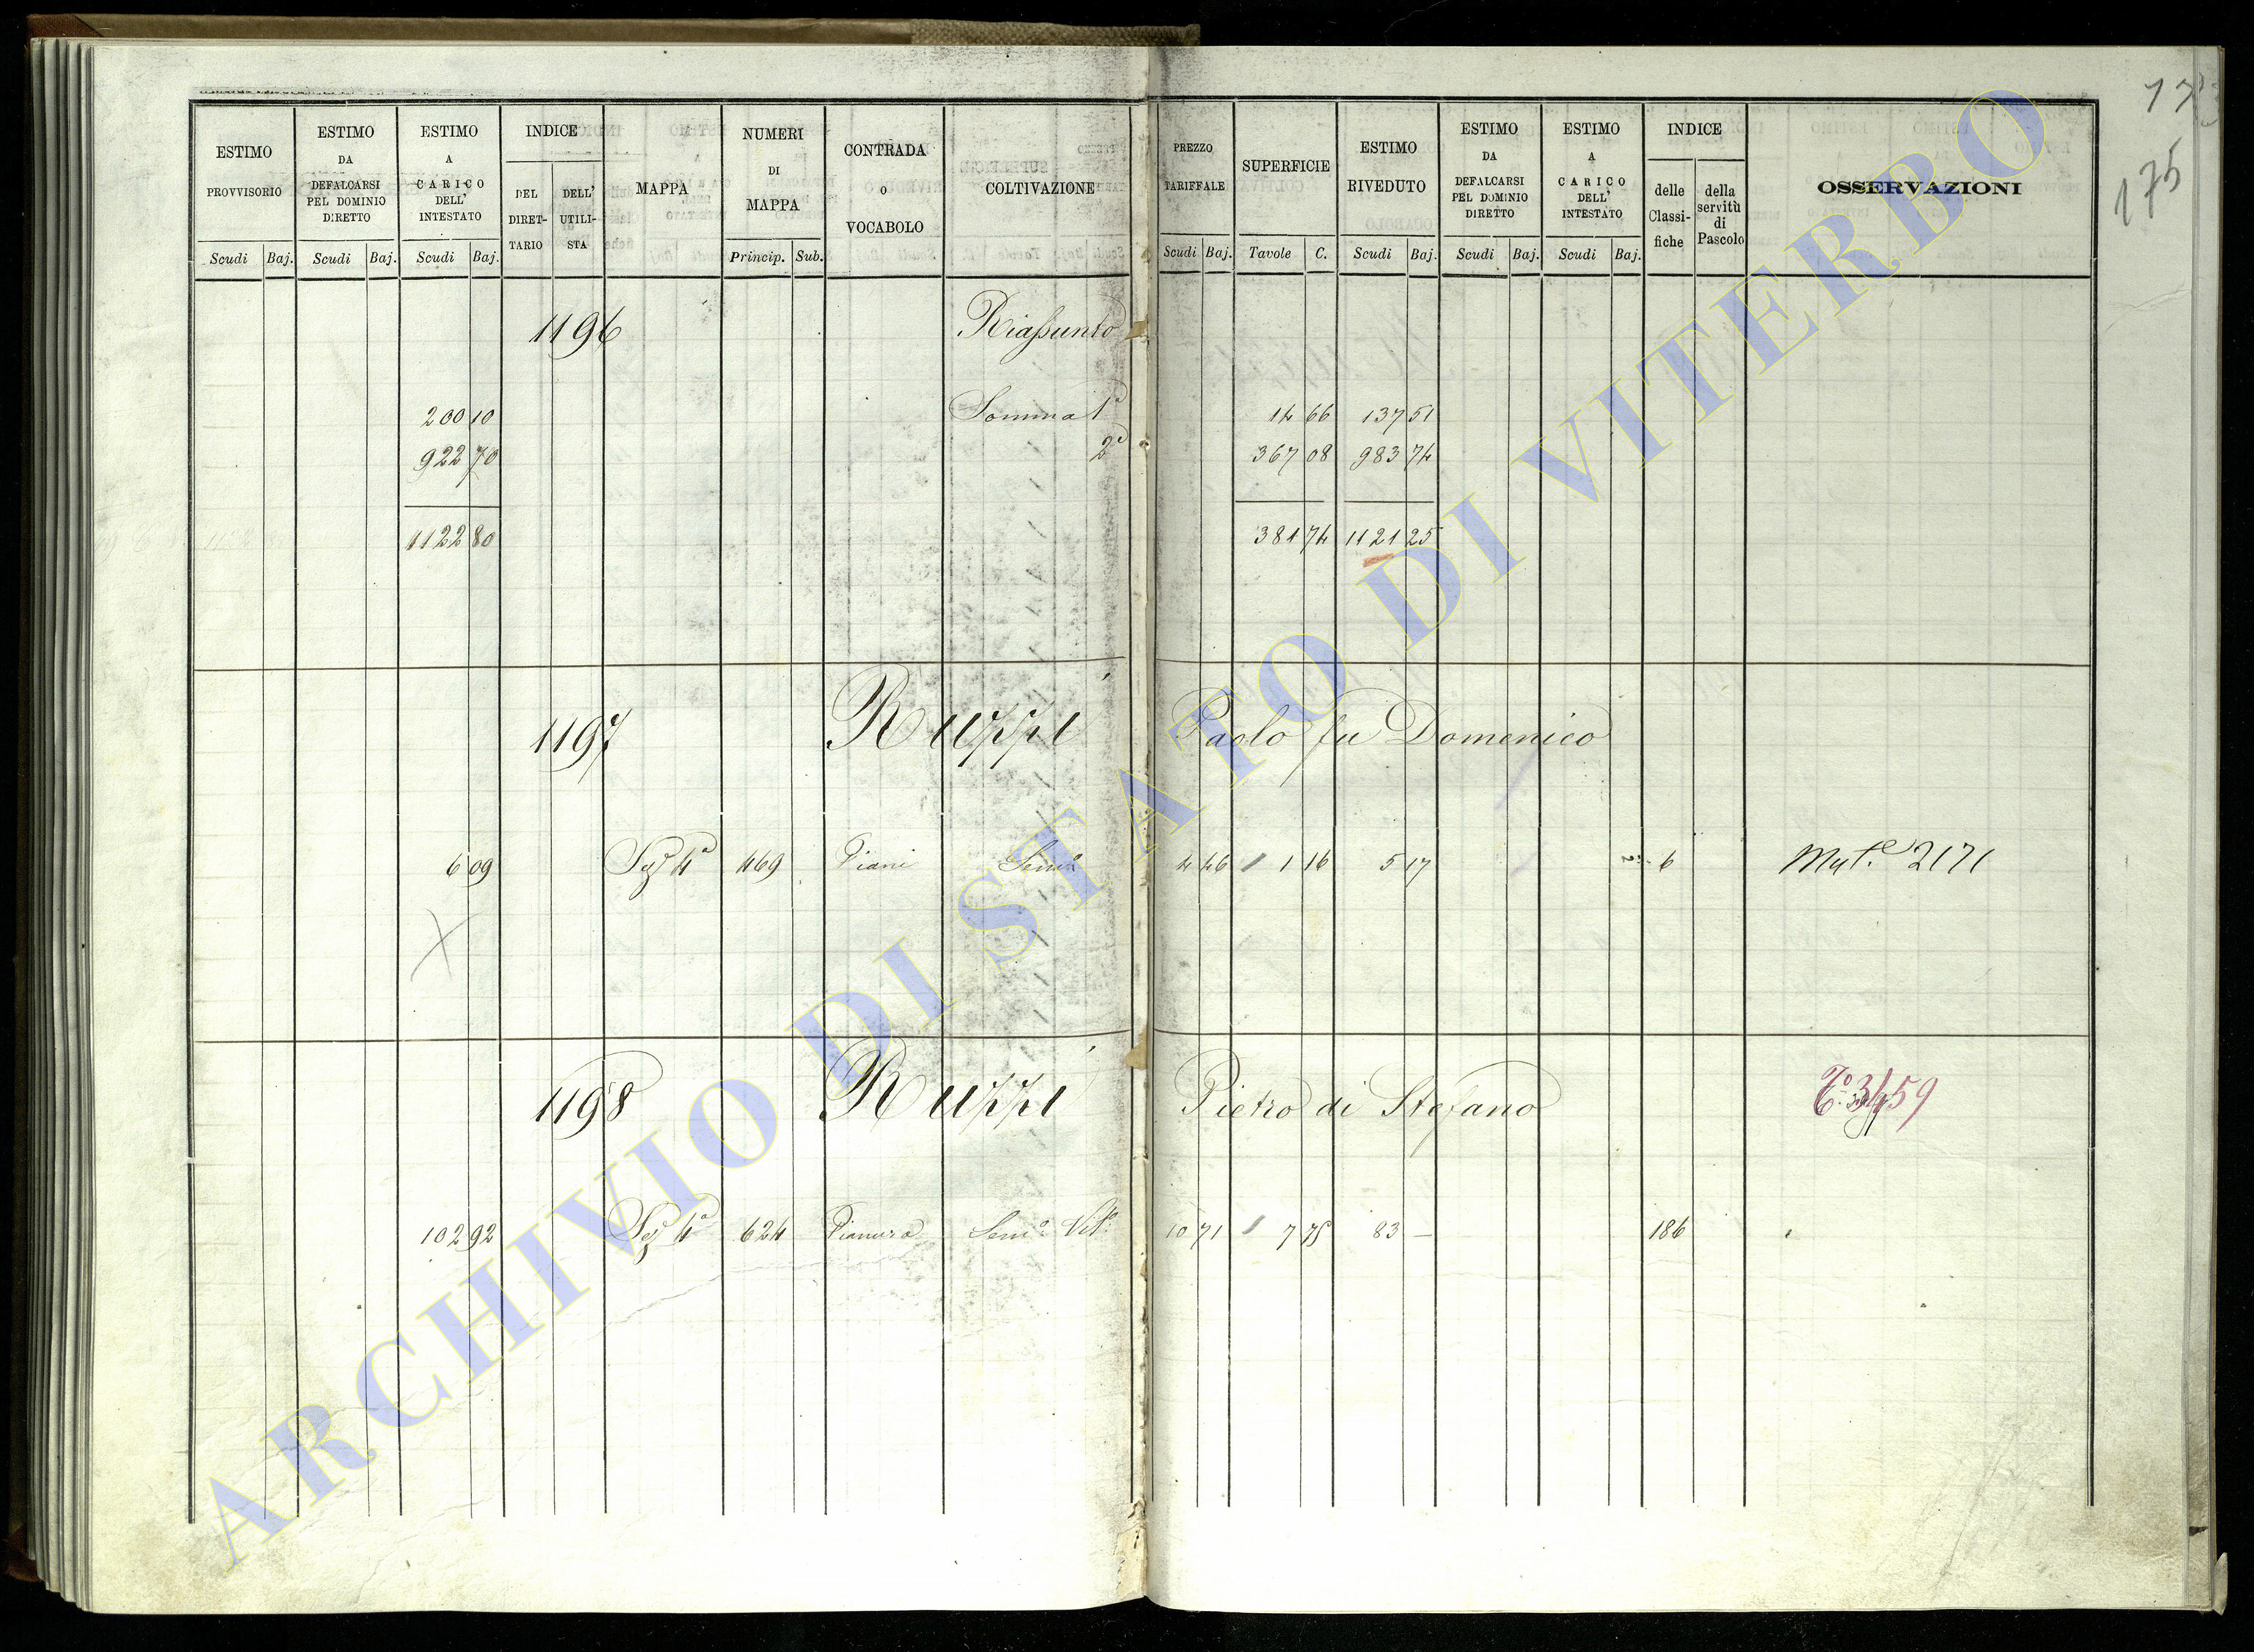 173
175
ESTIMO PROVVISORIO
ESTIMO DA DEFALCARSI PEL DOMINIO DIRETTO
ESTIMO A CARICO DELL' INTESTATO
INDICE
DEL DIRETTARIO
DELL' UTILISTA
MAPPA
NUMERI DI MAPPA
CONTRADA O VOCABOLO
COLTIVAZIONE
PREZZO TARIFFALE
SUPERFICIE
ESTIMO RIVEDUTO
ESTIMO DA DEFALCARSI PEL DOMINIO DIRETTO
ESTIMO A CARICO DELL' INTESTATO
INDICE
delle Classifiche
della servitù di Pascolo
OSSERVAZIONI
Scudi Baj. Scudi Baj. Scudi Baj. Princip. Sub. Scudi Baj. Tavole C. Scudi Baj. Scudi Baj. Scudi Baj.
1196 Riassunto
200 10 Somma 1ª 14 66 137 51
922 70 2ª 367 08 983 74
1122 80 381 74 1121 25
1197 Ruzzi Paolo fu Domenico
6 09 Sezᵉ 4ª 469 Piani Semº 4 46 1 16 5 17 6 Mutᵉ 2171
1198 Ruzzi Pietro di Stefano
102 92 Sezᵉ 4ª 624 Pianura Semº Vitº 10 71 7 75 83 — 186
ARCHIVIO DI STATO DI VITERBO